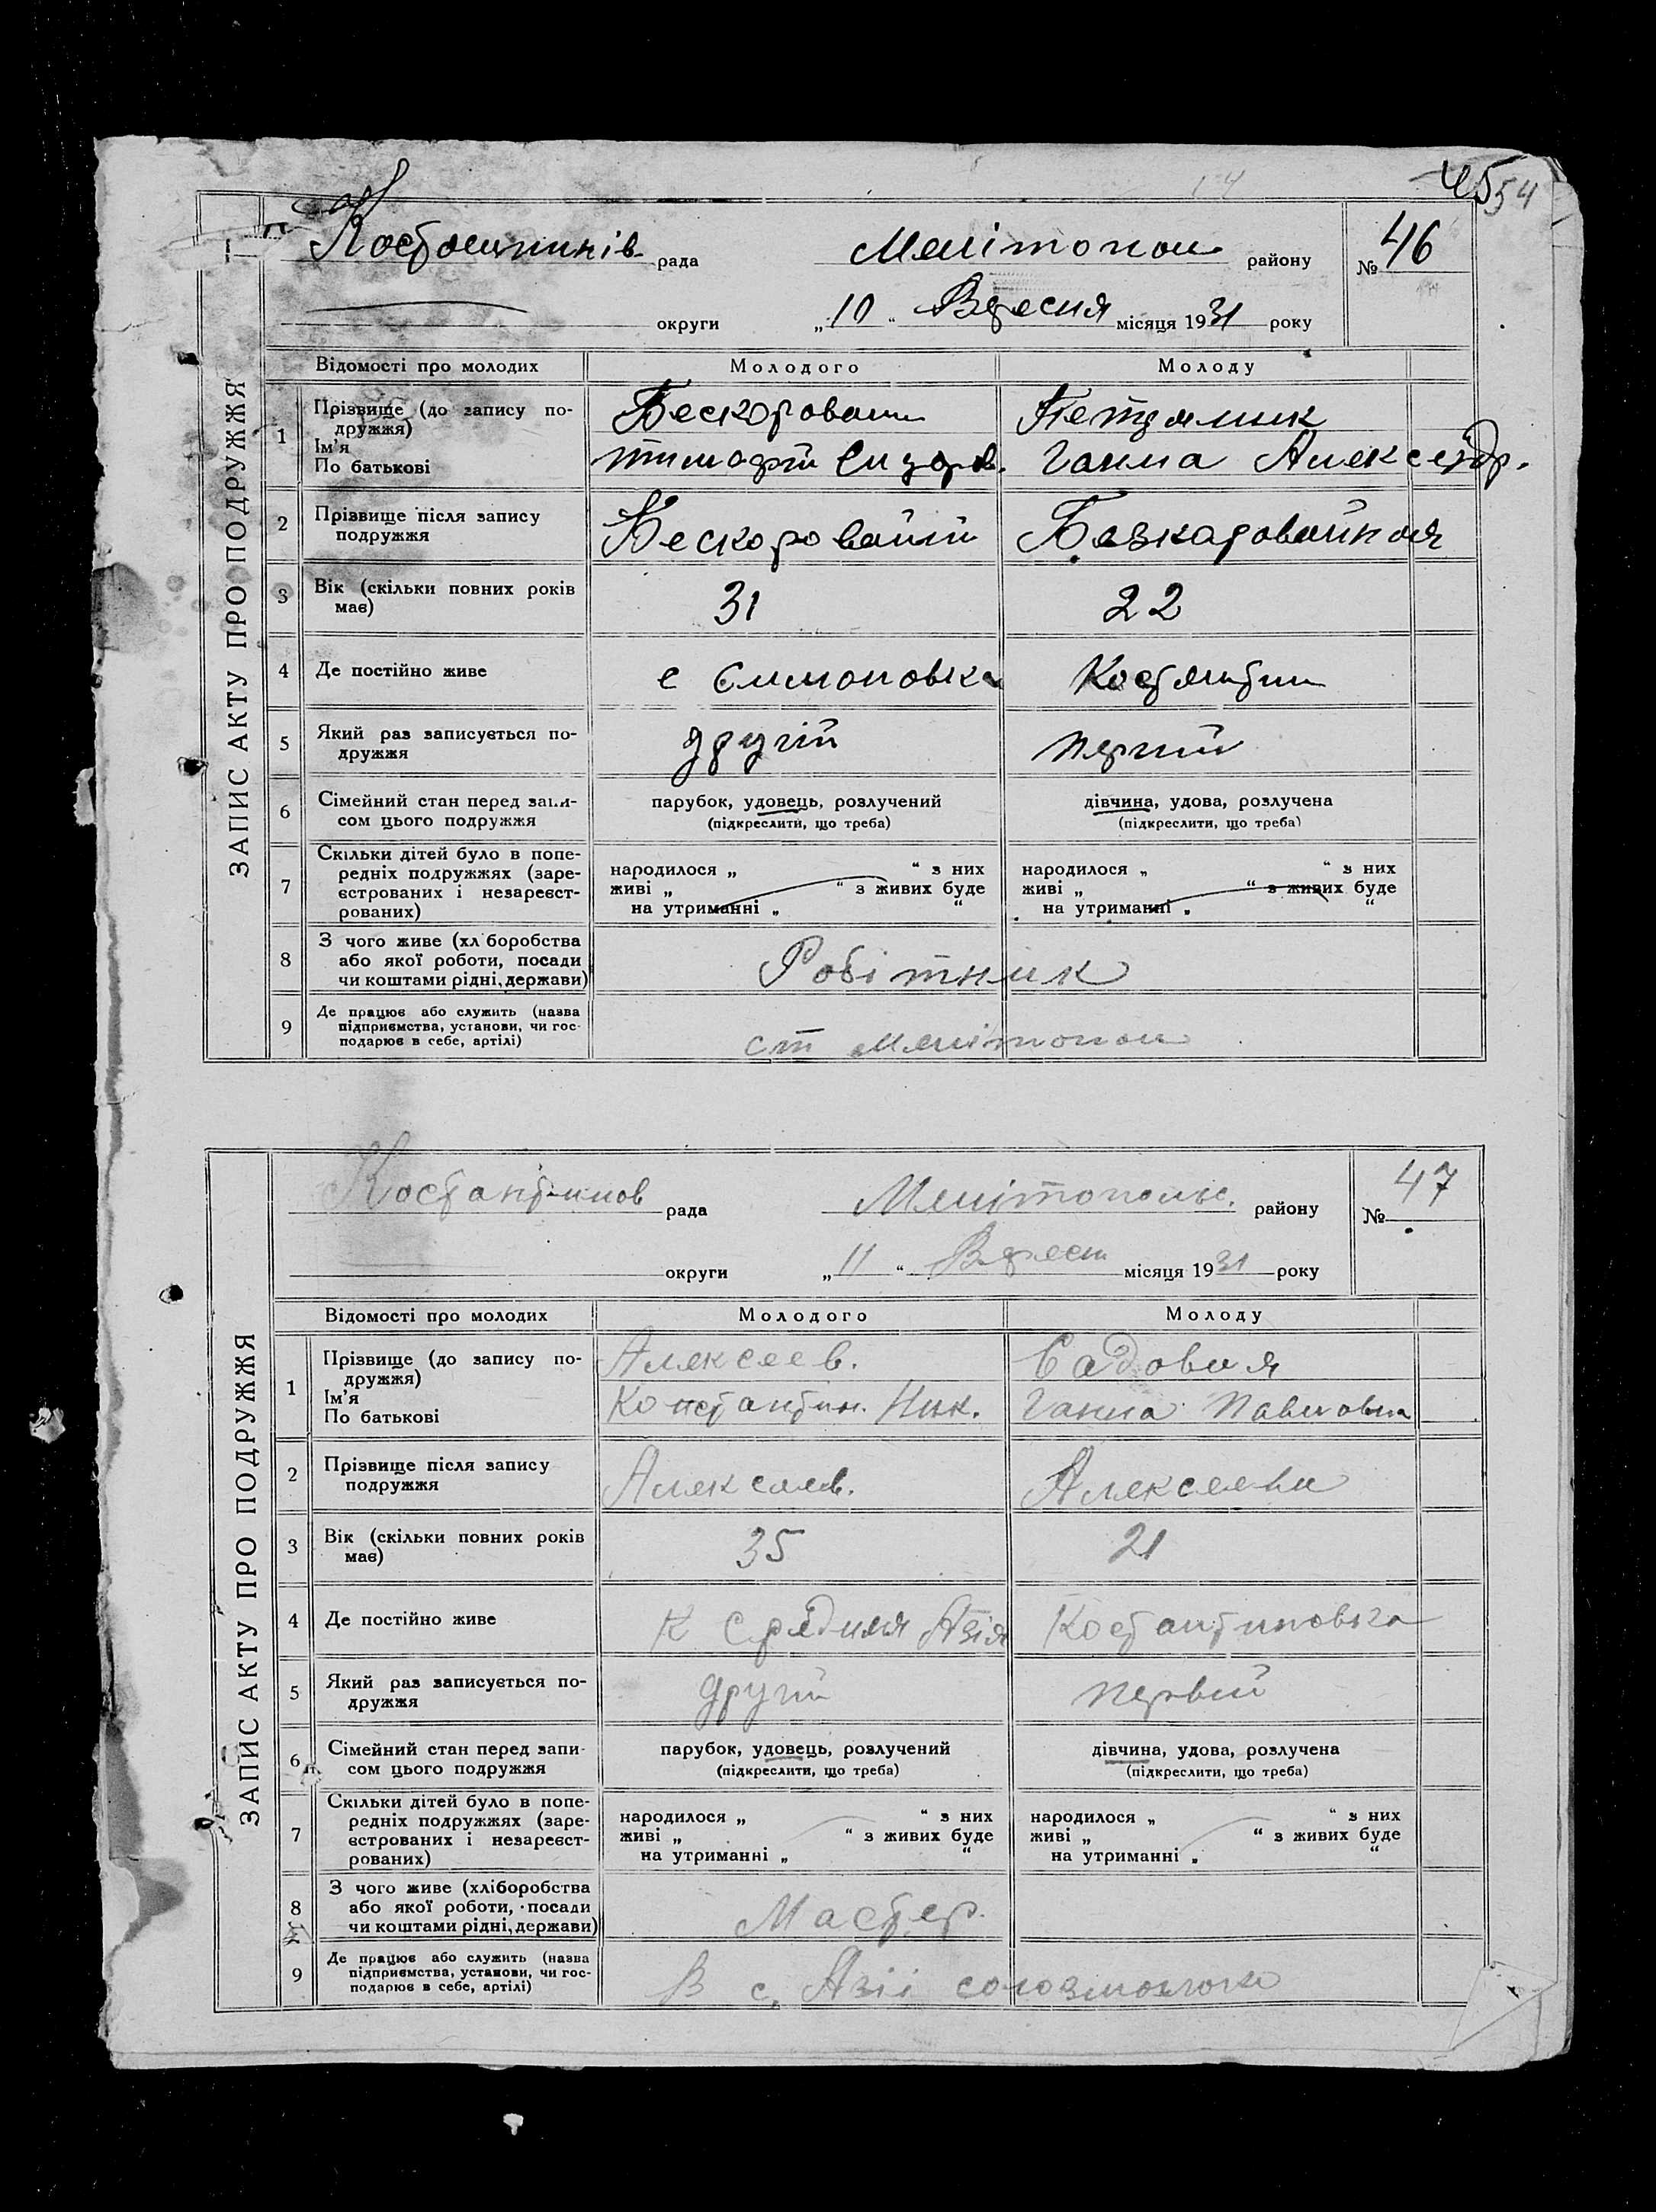 45 54
Костантинів рада Мелітопол району № 46
округи „10“ Вересня місяця 1931 року
ЗАПИС АКТУ ПРО ПОДРУЖЖЯ
Відомості про молодих Молодого Молоду
1 Прізвище (до запису по-
дружжя)
Ім'я
По батькові
Бескоровани Петрялик
тимофій Сидоров. Ганна Александр.
2 Прізвище після запису
подружжя
Бескоровайній Безкаровайная
3 Вік (скільки повних років
має)
31 22
4 Де постійно живе с Симоновка Костянтин
5 Який раз записується по-
дружжя
другій перший
6 Сімейний стан перед запи-
сом цього подружжя
парубок, удовець, розлучений дівчина, удова, розлучена
(підкреслити, що треба) (підкреслити, що треба)
7 Скільки дітей було в попе-
редніх подружжях (заре-
єстрованих і незареєст-
рованих)
народилося „ “ з них народилося „ “ з них
живі „ “ з живих буде живі „ “ з живих буде
на утриманні „ “ на утриманні „ “
8 З чого живе (хліборобства
або якої роботи, посади
чи коштами рідні, держави)
Робітник
9 Де працює або служить (назва
підприємства, установи, чи гос-
подарює в себе, артілі)
ст Мелітопол
Костантинов рада Мелітопольс. району № 47
округи „11“ Верест місяця 1931 року
ЗАПИС АКТУ ПРО ПОДРУЖЖЯ
Відомості про молодих Молодого Молоду
1 Прізвище (до запису по-
дружжя)
Ім'я
По батькові
Алексеев. Садовия
Константин. Ник. Ганна Павловна
2 Прізвище після запису
подружжя
Алексеев. Алексеева
3 Вік (скільки повних років
має)
35 21
4 Де постійно живе К Средняя Азія Костантиновка
5 Який раз записується по-
дружжя
другій первий
6 Сімейний стан перед запи-
сом цього подружжя
парубок, удовець, розлучений дівчина, удова, розлучена
(підкреслити, що треба) (підкреслити, що треба)
7 Скільки дітей було в попе-
редніх подружжях (заре-
єстрованих і незареєст-
рованих)
народилося „ “ з них народилося „ “ з них
живі „ “ з живих буде живі „ “ з живих буде
на утриманні „ “ на утриманні „ “
8 З чого живе (хліборобства
або якої роботи, посади
чи коштами рідні, держави)
Мастер.
9 Де працює або служить (назва
підприємства, установи, чи гос-
подарює в себе, артілі)
В с. Азіі союзмолоко